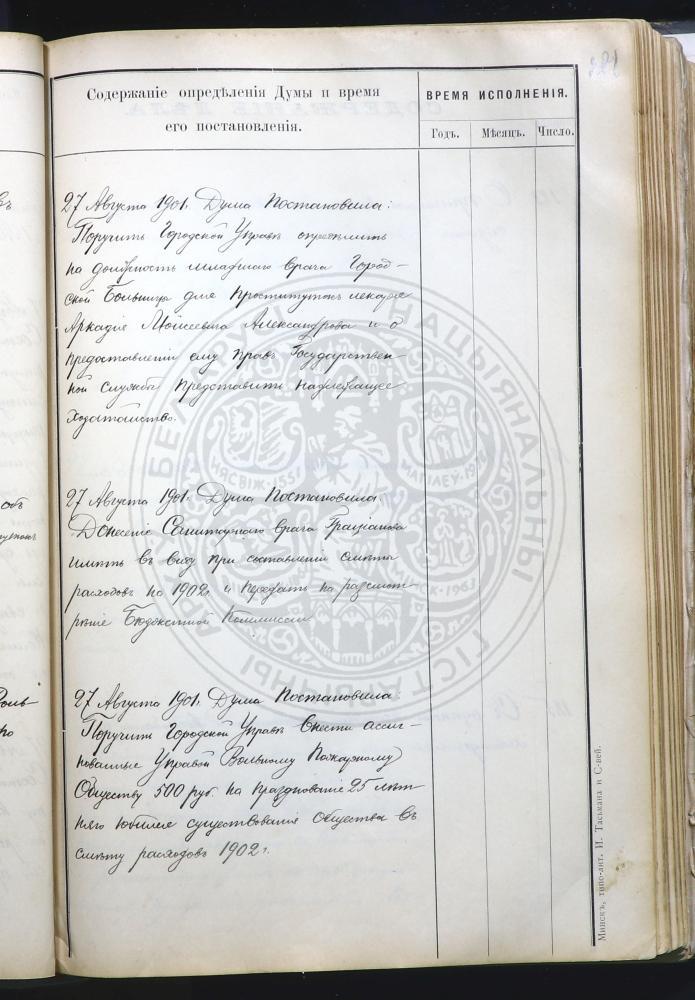 Содержаніе опредѣленія Думы и время
его постановленія.
ВРЕМЯ ИСПОЛНЕНІЯ.
Годъ. Мѣсяцъ. Число.
27 Августа 1901. Дума Постановила:
Поручить Городской Управѣ опредѣлить
на должность младшаго врача Город-
ской Больницы для проститутокъ лекаря
Аркадія Моисеевича Александрова и о
предоставленіи ему правъ Государствен-
ной службы представить надлежащее
ходатайство.
27 Августа 1901. Дума Постановила.
Донесеніе Санитарнаго врача Граціанова
имѣть въ виду при составленіи смѣты
расходовъ на 1902 г. и передать на разсмот-
рѣніе Бюджетной Коммиссіи
27 Августа 1901. Дума Постановила:
Поручить Городской Управѣ Внести ассиг-
нованные Управой Вольному Пожарному
Обществу 500 руб. на празднованіе 25 лѣт-
няго юбилея существованія Общества въ
смѣту расходовъ 1902 г.
Минскъ, типо-лит. И. Тасьмана и С-вей.
НЯСВІЖ
МАГІЛЕЎ
НАЦЫЯНАЛЬНЫ
ГІСТАРЫЧНЫ